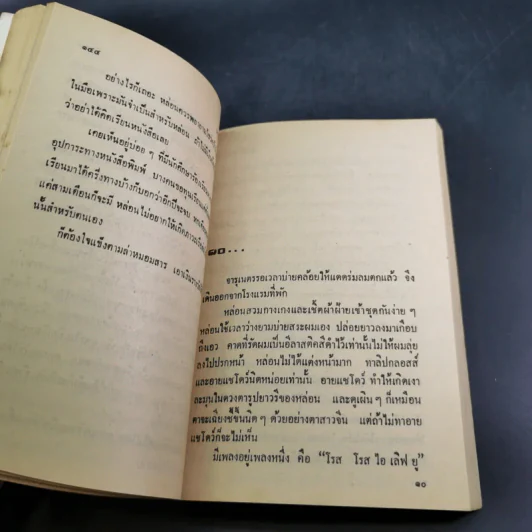 ๑๔๔
อย่างไรก็เถอะ หล่อนควรพยายาม
ในมือเพราะมันจำเป็นสำหรับหล่อน
ว่าอย่าได้คิดเรียนหนังสือเลย
เคยเห็นอยู่บ่อย ๆ ที่มีนักศึกษา
อุปการะทางหนังสือพิมพ์ บางคนขอทุน
เรียนมาได้ครึ่งทางบ้างก็บอกว่าอีกปีจะจบ
แค่สามเดือนก็จะมี หล่อนไม่อยากให้เกิด
นั้นสำหรับตนเอง
ก็ต้องใจแข็งตามล่าหมอมสาร
๑๐...
จารุเนตรรอเวลาบ่ายคล้อยให้แดดร่มลมตกแล้ว จึง
เดินออกจากโรงแรมที่พัก
หล่อนสวมกางเกงและเชิ้ตผ้าฝ้ายเข้าชุดกันง่าย ๆ
หล่อนใช้เวลาว่างยามบ่ายสระผมเอง ปล่อยยาวลงมาเกือบ
ถึงเอว คาดที่รัดผมเป็นอีลาสติคสีดำไว้เท่านั้นไม่ให้ผมลุ่ย
ลงไปปรกหน้า หล่อนไม่ได้แต่งหน้ามาก ทาลิปกลอสส์
และอายแชโดว์นิดหน่อยเท่านั้น อายแชโดว์ ทำให้เกิดเงา
ละมุนในดวงตารูปยาวรีของหล่อน และดูเผิน ๆ ก็เหมือน
ตาจะเฉียงชี้ขึ้นนิด ๆ ด้วยอย่างตาสาวจีน แต่ถ้าไม่ทาอาย
แชโดว์ก็จะไม่เห็น
มีเพลงอยู่เพลงหนึ่ง คือ “โรส โรส ไอ เลิฟ ยู”
๑๐